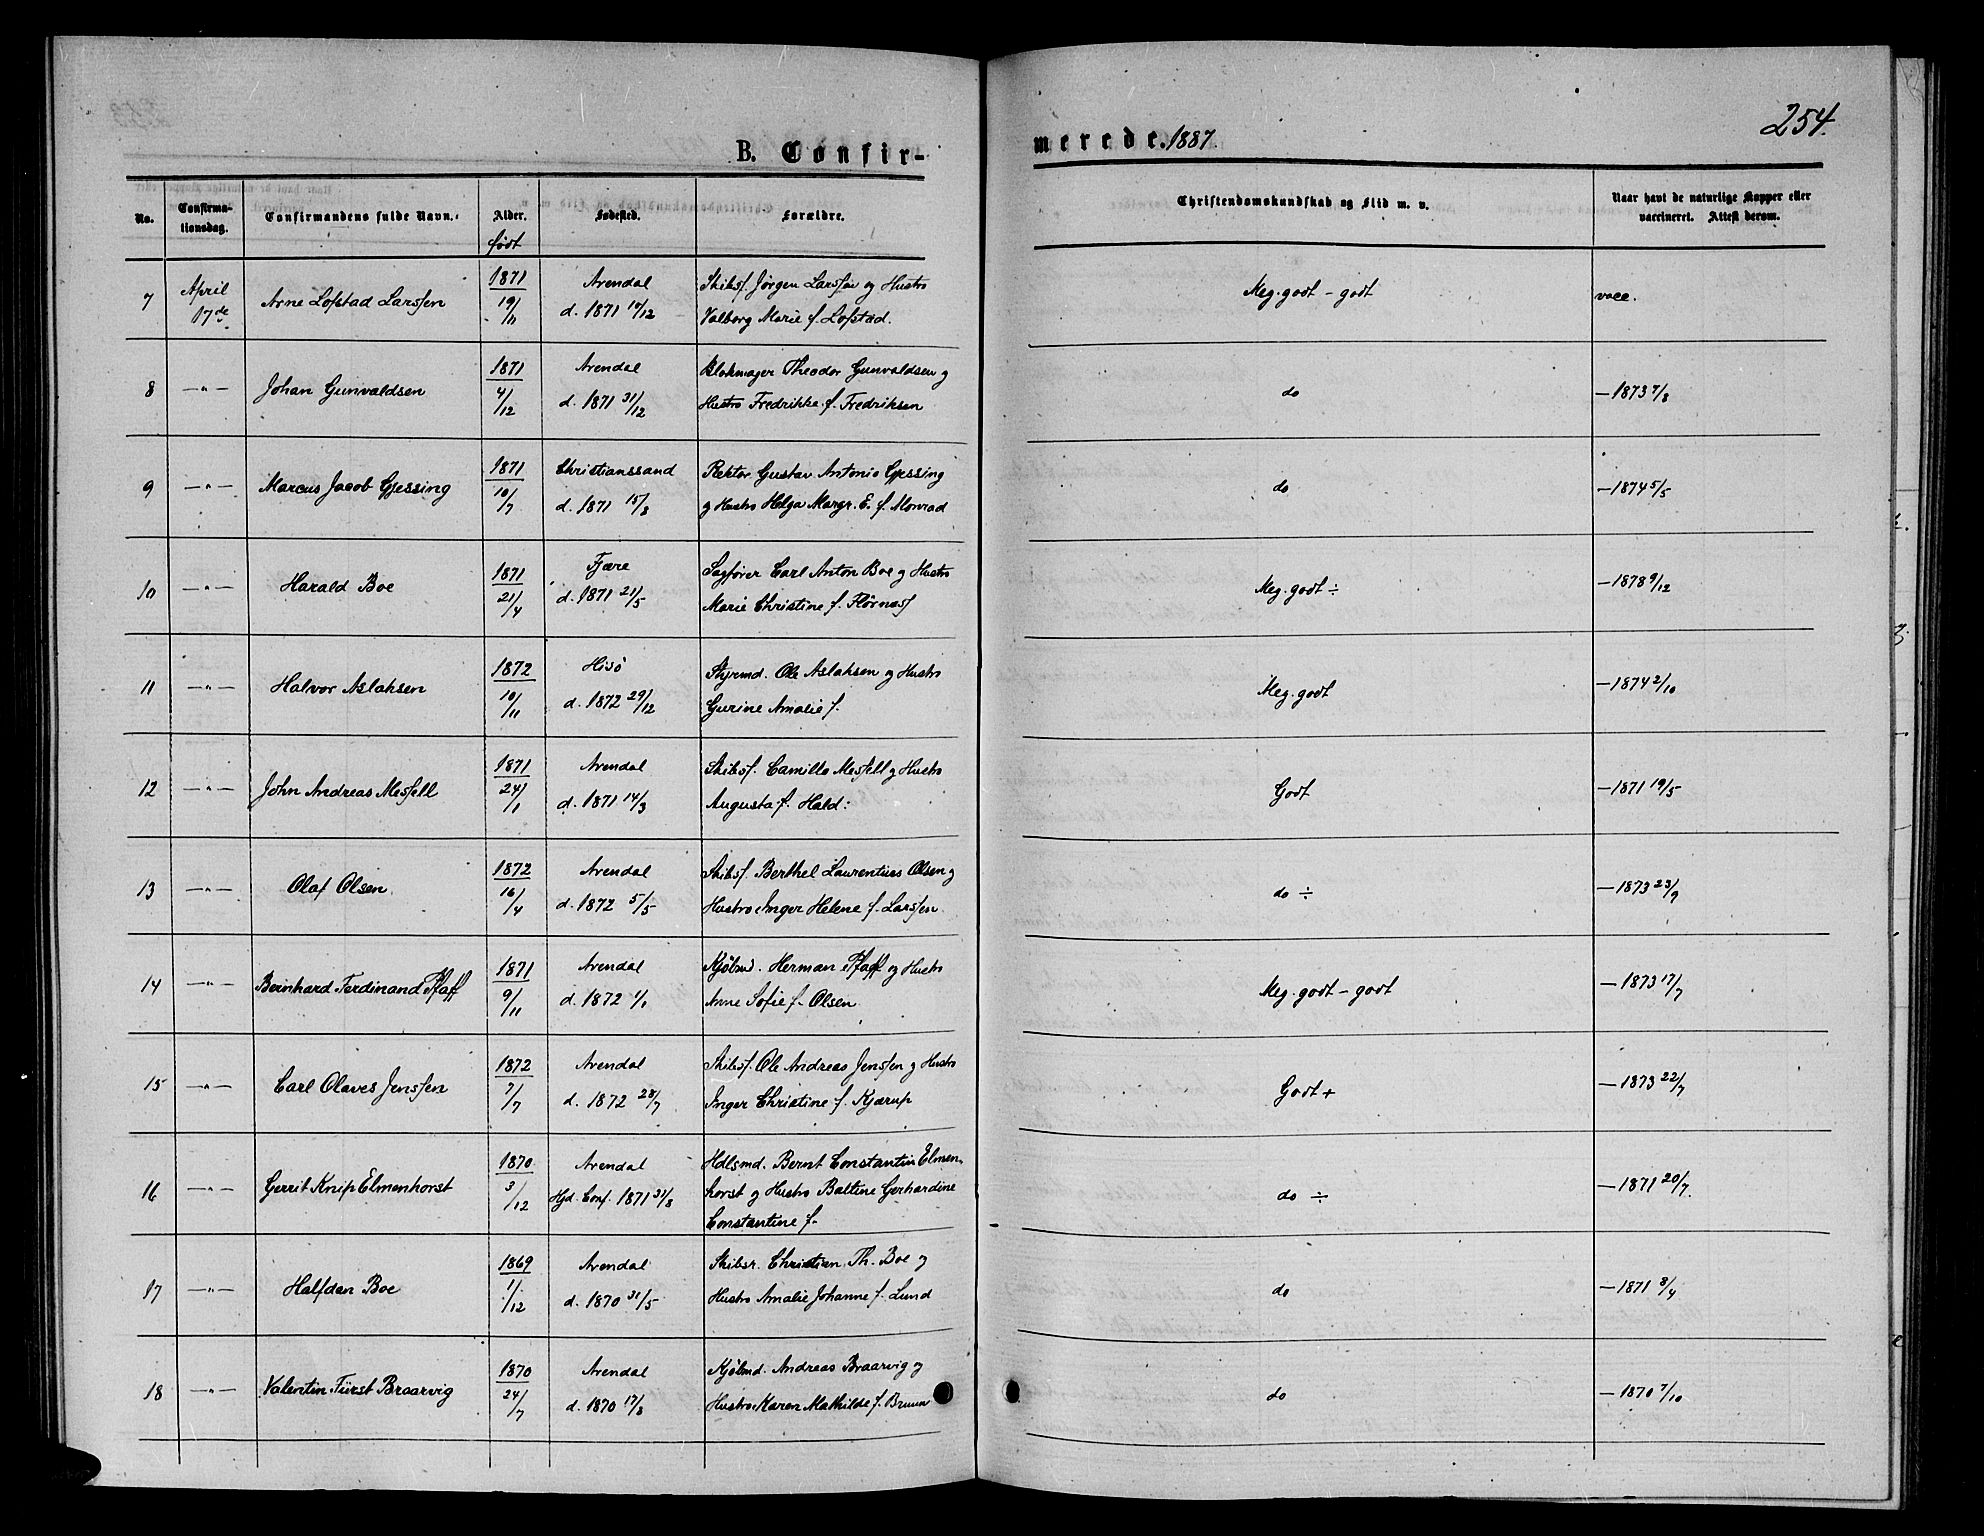 254.
B. Confir-
merede. 1887.
No.
Confirma-
tionsdag.
Confirmandens fulde Navn.
Alder.
født
Fødested.
Forældre.
Christendomskundskab og Flid m. v.
Naar havt de naturlige Kopper eller
vaccineret. Attest derom.
7 April 17de Arne Lofstad Larssen 1871 19/11 Arendal d. 1871 17/12 Skibsf. Jørgen Larssen og Hustro
Valborg Marie f. Lofstad. Meg. godt - godt vacc.
8 —"— Johan Gunvaldsen 1871 4/12 Arendal d. 1871 31/12 Blokmager Theodor Gunvaldsen og
Hustro Fredrikke f. Fredriksen do — 1873 7/8
9 —"— Marcus Jacob Gjessing 1871 10/7 Christianssand d. 1871 15/8 Rektor Gustav Antonio Gjessing
og Hustro Helga Margr. E. f. Monrad do — 1874 5/5
10 —"— Harald Boe 1871 21/4 Fjære d. 1871 21/5 Sagfører Carl Anton Boe og Hustro
Marie Christine f. Meg. godt ÷ — 1878 9/12
11 —"— Halvor Aslaksen 1872 10/11 Hisø d. 1872 29/12 Styrmd. Ole Aslaksen og Hustro
Gurine Amalie f. Meg. godt — 1874 2/10
12 —"— John Andreas Mesfell 1871 24/1 Arendal d. 1871 14/3 Skibsf. Camillo Mesfell og Hustro
Augusta f. Hald: Godt — 1871 19/5
13 —"— Olaf Olsen 1872 16/4 Arendal d. 1872 5/5 Skibsf. Berthel Laurentius Olsen og
Hustro Inger Helene f. Larssen. do ÷ — 1873 23/9
14 —"— Bernhard Ferdinand Pfaff 1871 9/11 Arendal d. 1872 1/1 Kjøbmd. Herman Pfaff og Hustro
Anne Sofie f. Olsen Meg. godt - godt — 1873 17/7
15 —"— Carl Olaves Jenssen 1872 7/7 Arendal d. 1872 28/7 Skibsf. Ole Andreas Jenssen og Hustro
Inger Christine f. Kjærup Godt + — 1873 22/7
16 —"— Gerrit Knip Elmenhorst 1870 3/12 Arendal Hjd. Conf. 1871 31/8 Hdlsmd. Bernt Constantin Elmen-
horst og Hustro Baltine Gerhardine
Constantine f. do ÷ — 1871 20/7.
17 —"— Halfdan Boe 1869 1/12 Arendal d. 1870 31/5 Skibsr. Christian Th. Boe og
Hustro Amalie Johanne f. Lund do — 1871 8/4
18 —"— Valentin Fürst Braarvig 1870 24/7 Arendal d. 1870 17/8 Kjøbmd. Andreas Braarvig og
Hustro Karen Mathilde f. Bruun do — 1870 7/10